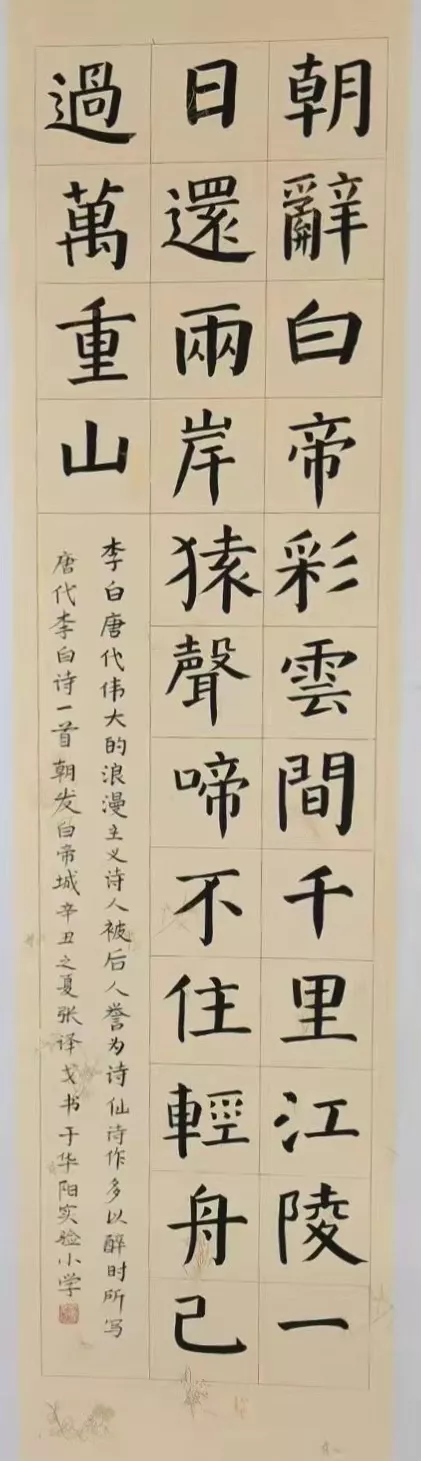 朝辭白帝彩雲間千里江陵一
日還兩岸猿聲啼不住輕舟己
過萬重山
李白唐代伟大的浪漫主义诗人被后人誉为诗仙诗作多以醉时所写
唐代李白诗一首朝发白帝城辛丑之夏张译戈书于华阳实验小学